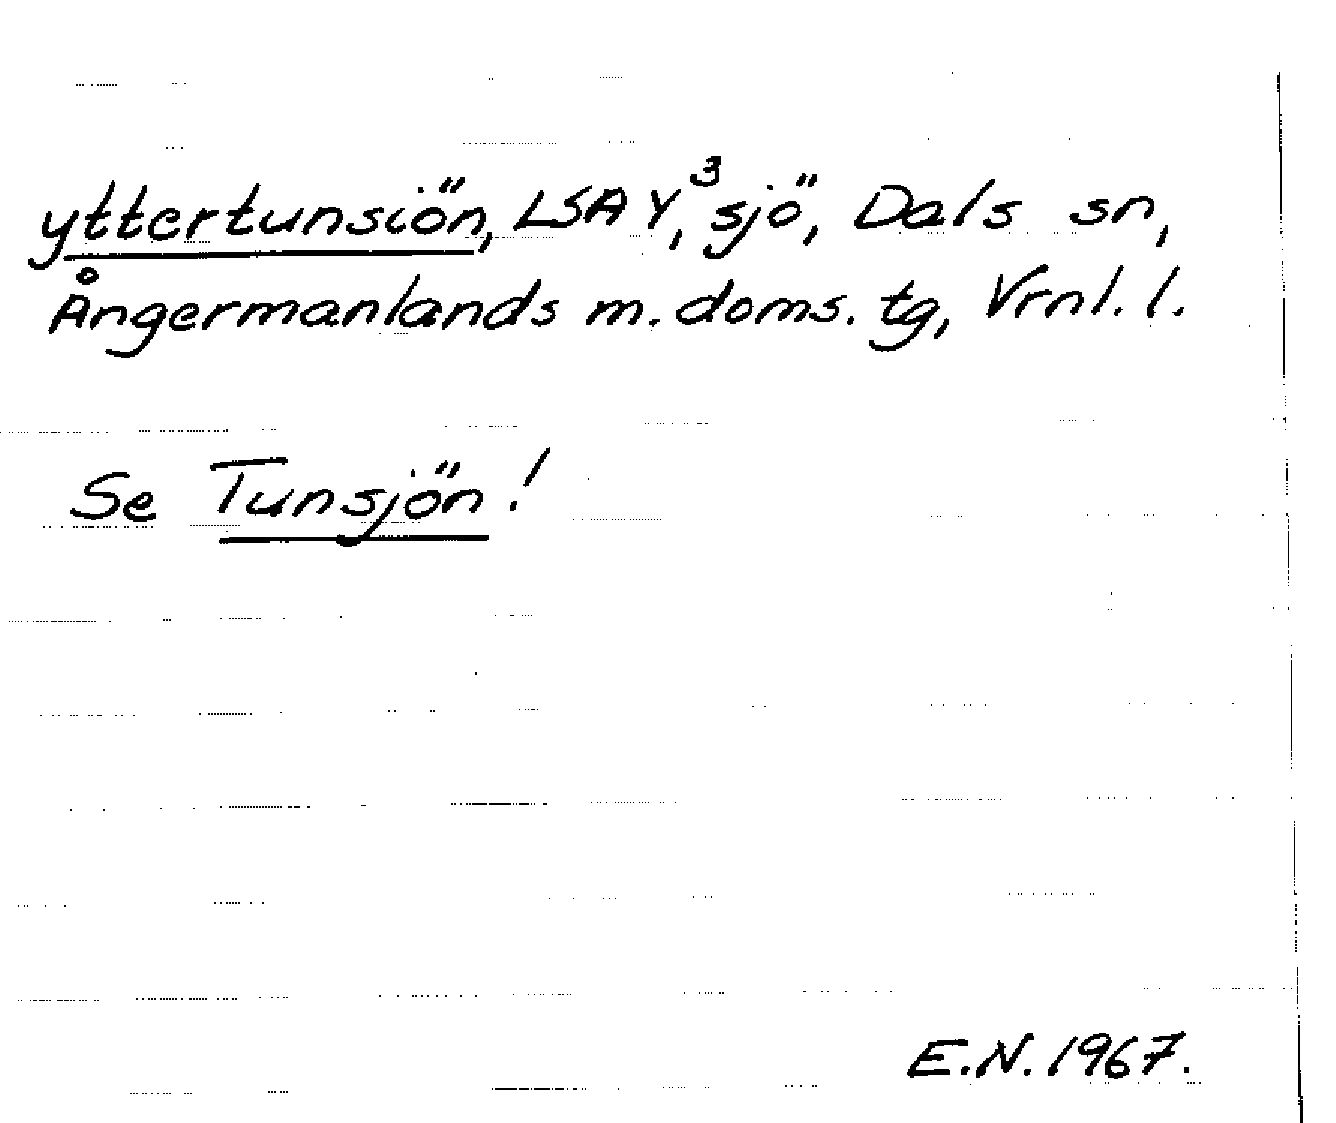 yttertunsiön, LSA Y³, sjö, Dals sn,
Ångermanlands m. doms. tg, Vrnl. l.
Se Tunsjön!
E.N. 1967.